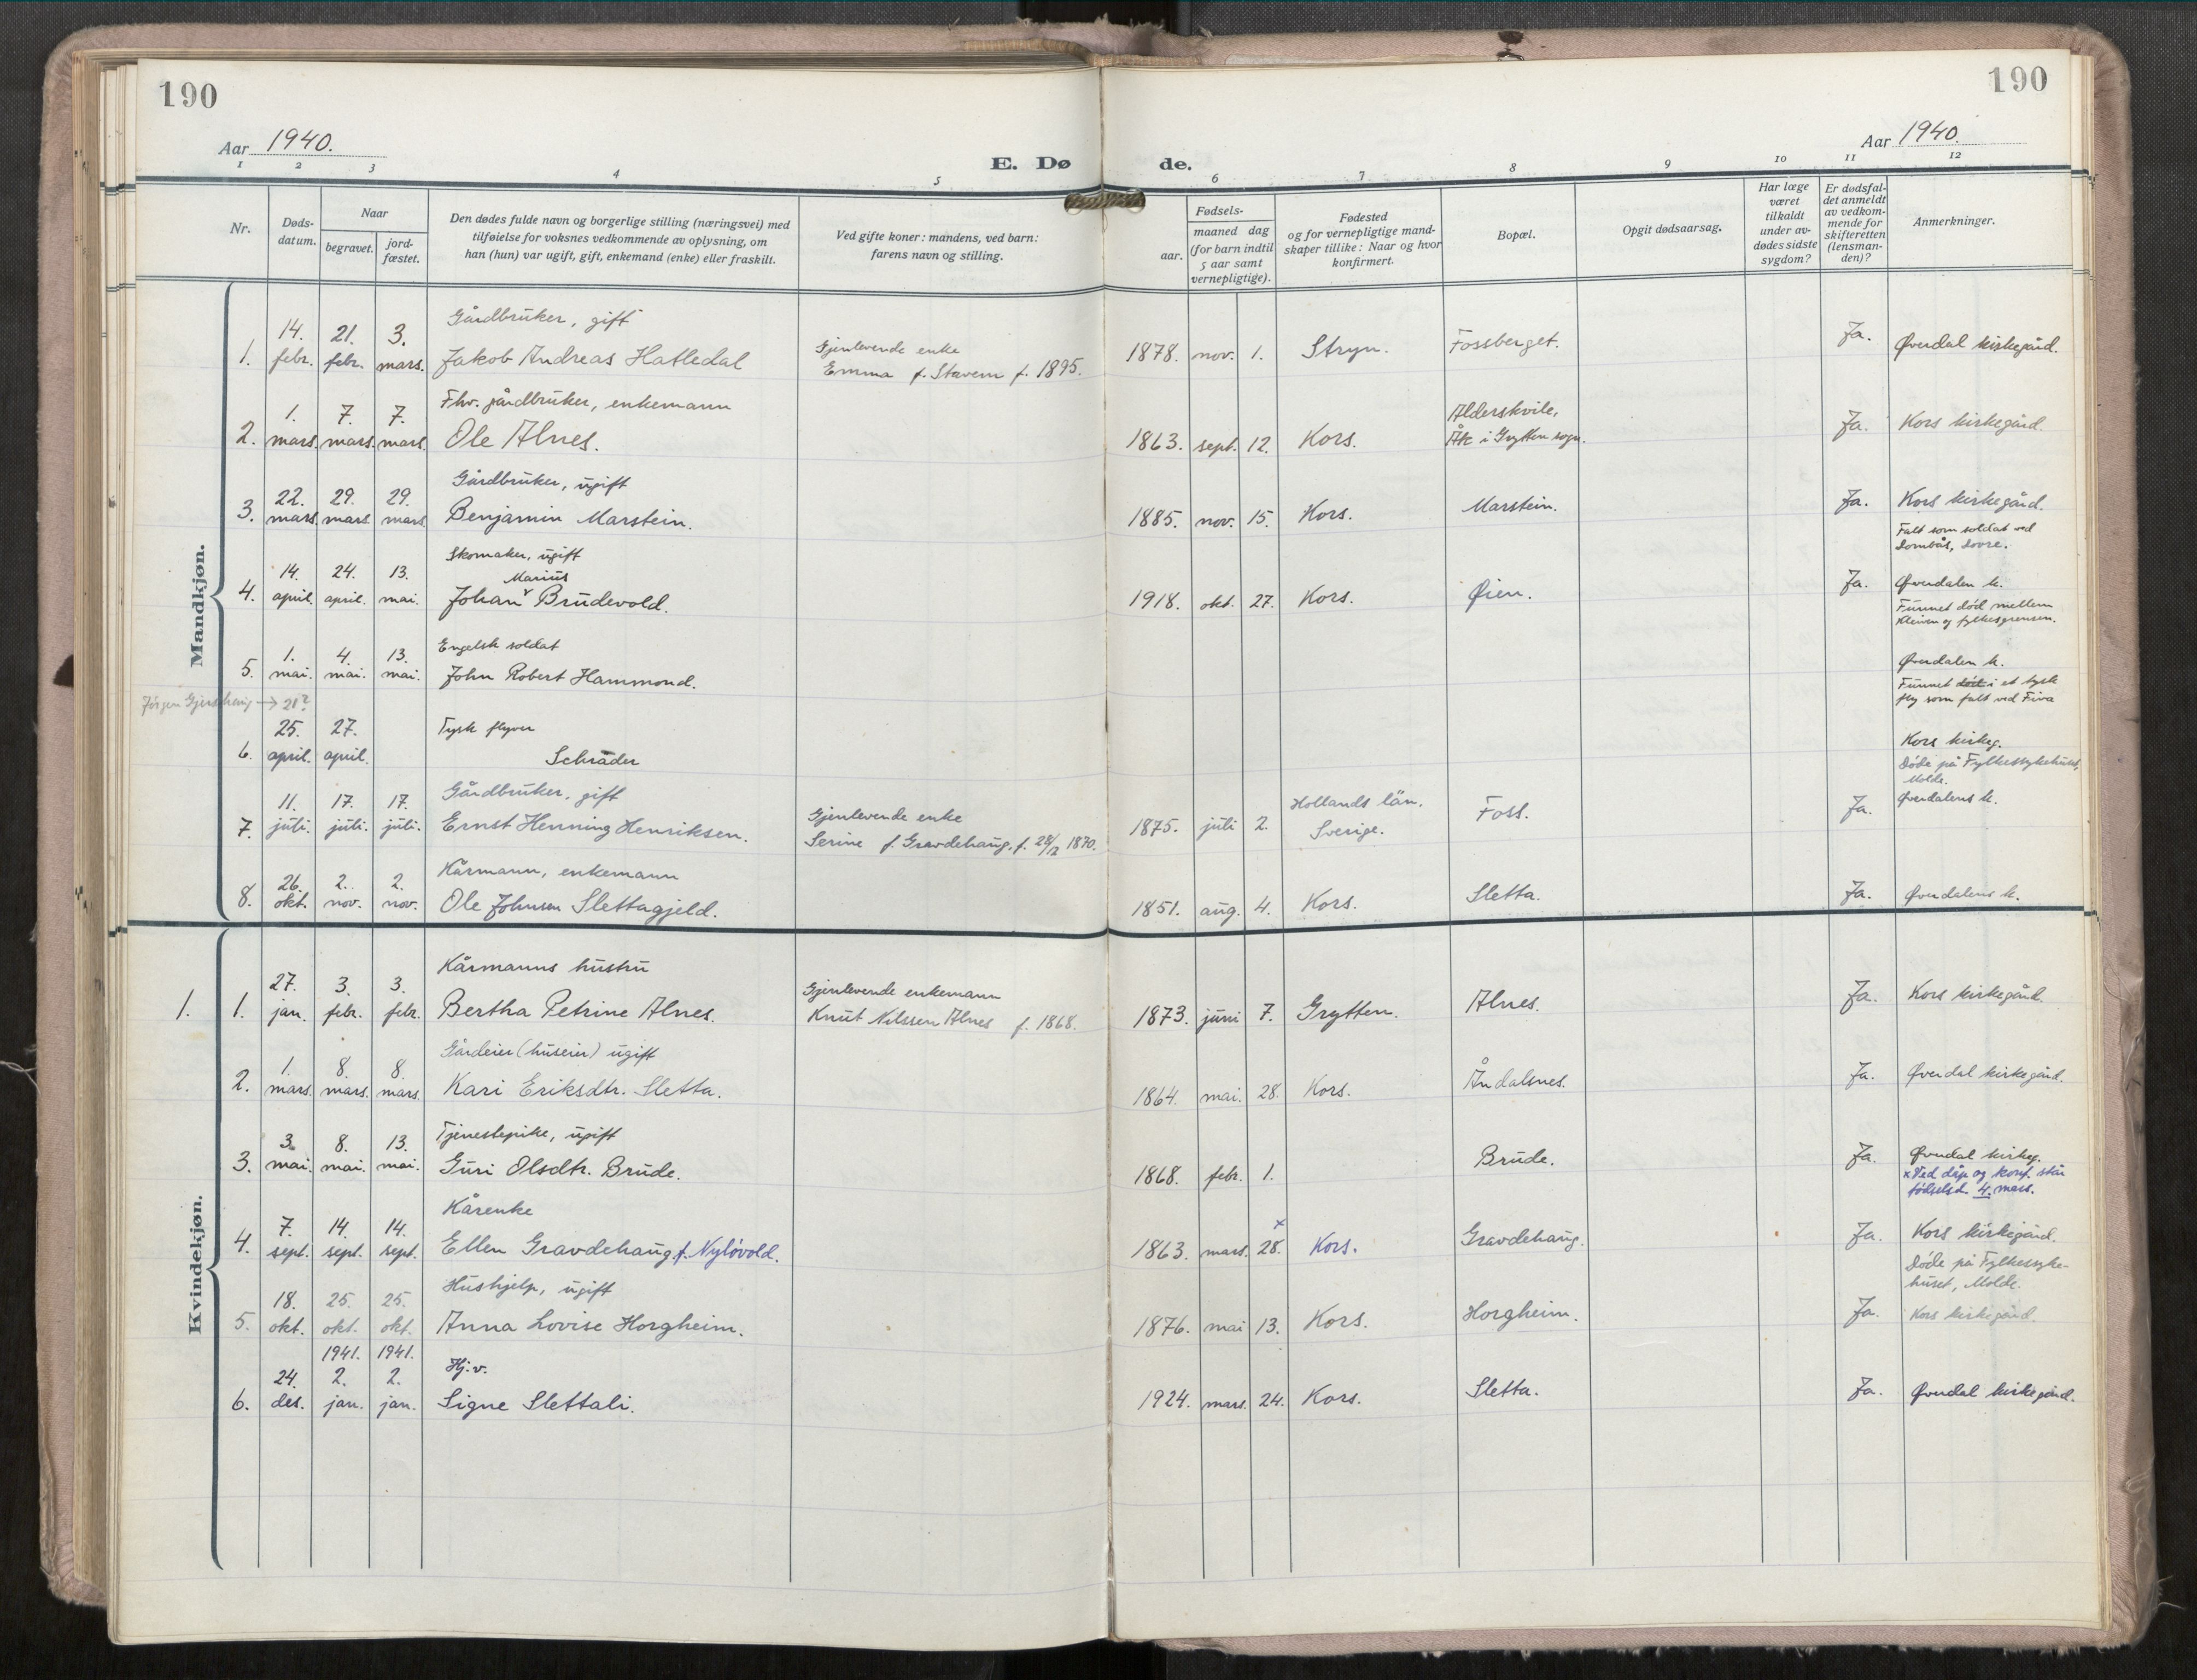 190
190
Aar 1940.
Aar 1940.
E. Dø de.
1 2 3 4 5 6 7 8 9 10 11 12
Nr.
Døds-
datum.
Naar
begravet.
jord-
fæstet.
Den dødes fulde navn og borgerlige stilling (næringsvei) med
tilføielse for voksnes vedkommende av oplysning, om
han (hun) var ugift, gift, enkemand (enke) eller fraskilt.
Ved gifte koner: mandens, ved barn:
farens navn og stilling.
Fødsels-
aar.
maaned dag
(for barn indtil
5 aar samt
vernepligtige).
Fødested
og for vernepligtige mand-
skaper tillike: Naar og hvor
konfirmert.
Bopæl.
Opgit dødsaarsag.
Har læge
været
tilkaldt
under av-
dødes sidste
sygdom?
Er dødsfal-
det anmeldt
av vedkom-
mende for
skifteretten
(lensman-
den)?
Anmerkninger.
Mandkjøn.
Gårdbruker, gift
14. 21. 3. Gjenlevende enke Fossberget. Ja.
1. febr. febr. mars. Jakob Andreas Hatledal Emma f. Stavem f. 1895. 1878. nov. 1. Stryn. Øverdal kirkegård.
Fhv. gårdbruker, enkemann
1. 7. 7. Alderskvile,
2. mars. mars. mars. Ole Alnes. 1863. sept. 12. Kors. Åk i Grytten sogn. Ja. Kors kirkegård.
Gårdbruker, ugift
22. 29. 29.
3. mars. mars. mars. Benjamin Marstein. 1885. nov. 15. Kors. Marstein. Ja. Kors kirkegård.
Falt som soldat ved
Dombås, Dovre.
Skomaker, ugift
14. 24. 13. Marius
4. april. april. mai. Johan Brudevold. 1918. okt. 27. Kors. Øien. Ja. Øverdalen k.
Funnet død mellem
Kleiven og fylkesgrensen.
Engelsk soldat
1. 4. 13.
5. mai. mai. mai. John Robert Hammond. Øverdalen k.
Funnet død i et tysk
fly som falt ved Fiva
Jörgen → 21?
25. 27. Tysk flyver
6. april. april. Schräder Kors kirkeg.
Døde på Fylkessykehuset,
Molde.
Gårdbruker, gift
11. 17. 17. Gjenlevende enke Hollands län.
7. juli. juli. juli. Ernst Henning Henriksen. Serine f. Gravdehaug, f. 28/12 1870. 1875. juli 2. Sverige. Foss. Ja. Øverdalens k.
Kårmann, enkemann
26. 2. 2.
8. okt. nov. nov. Ole Johnsen Slettagjeld. 1851. aug. 4. Kors. Sletta. Ja. Øverdalens k.
Kvindekjøn.
Kårmanns hustru
27. 3. 3. Gjenlevende enkemann
1. 1. jan. febr. febr. Bertha Petrine Alnes. Knut Nilssen Alnes f. 1868. 1873. juni 7. Grytten. Alnes. Ja. Kors kirkegård.
Gårdeier (huseier) ugift
1. 8. 8.
2. mars. mars. mars. Kari Eriksdtr. Sletta. 1864. mai. 28. Kors. Åndalsnes. Ja. Øverdal kirkegård.
Tjenestepike, ugift
3. 8. 13.
3. mai. mai. mai. Guri Olsdtr. Brude. 1868. febr. 1. Brude. Ja. Øverdal kirkeg.
x Ved dåp og konf. står
fødselsd. 4. mars.
Kårenke
7. 14. 14. x
4. sept. sept. sept. Ellen Gravdehaug f. Nyløvold. 1863. mars. 28. Kors. Gravdehaug. Ja. Kors kirkegård.
Døde på Fylkessyke-
huset, Molde.
Hushjelp, ugift
18. 25. 25.
5. okt. okt. okt. Anna Lovise Horgheim. 1876. mai 13. Kors. Horgheim. Ja. Kors kirkegård.
1941. 1941.
24. 2. 2. Hj.v.
6. des. jan. jan. Signe Slettali. 1924. mars. 24. Kors. Sletta. Ja. Øverdal kirkegård.